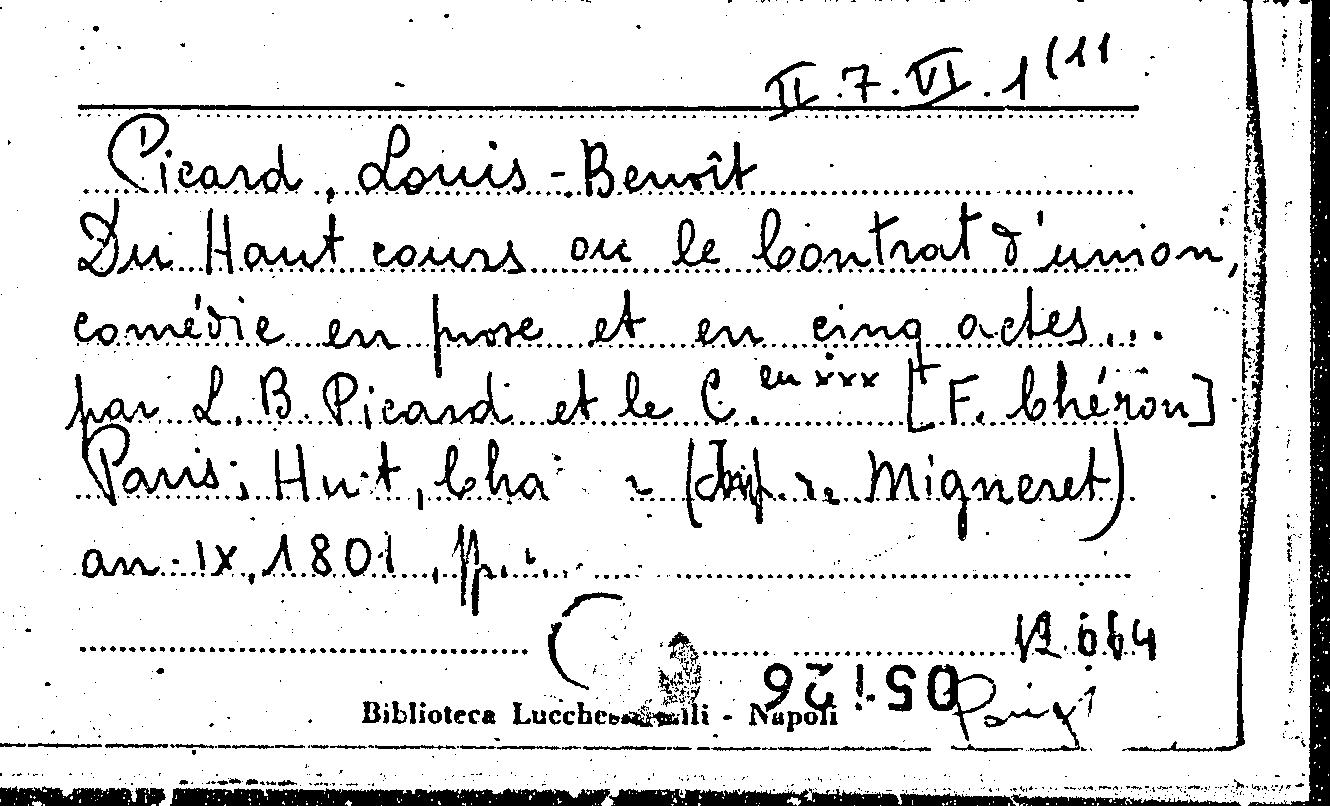 II.7.VI.1(11
Picard, Louis-Benoît
Du Haut cours ou le Contrat d'union,
comédie en prose et en cinq actes...
par L.B. Picard et le C.en xxx [F. Chéron]
Paris; Huet, Cha (Imp. de Migneret)
an IX, 1801, pp.
Biblioteca Lucchesi Palli - Napoli